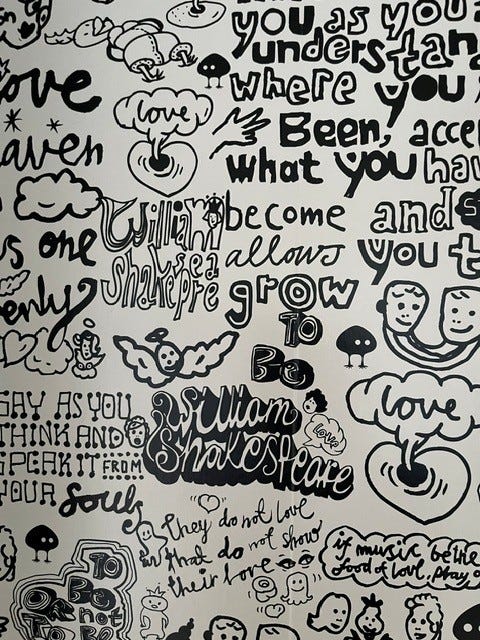 you as you a
understand
where you
Been, accep
what you hav
become and
allows you t
grow
ove
aven
love
William
Shakespeare
s one
enly
TO
Be
SAY AS YOU
THINK AND
SPEAK IT FROM
YOUR Souls
William
Shakespeare
love
love
they do not love
that do not show
their love
TO
Be
OR not
TO Be
if music be the
food of love, play o